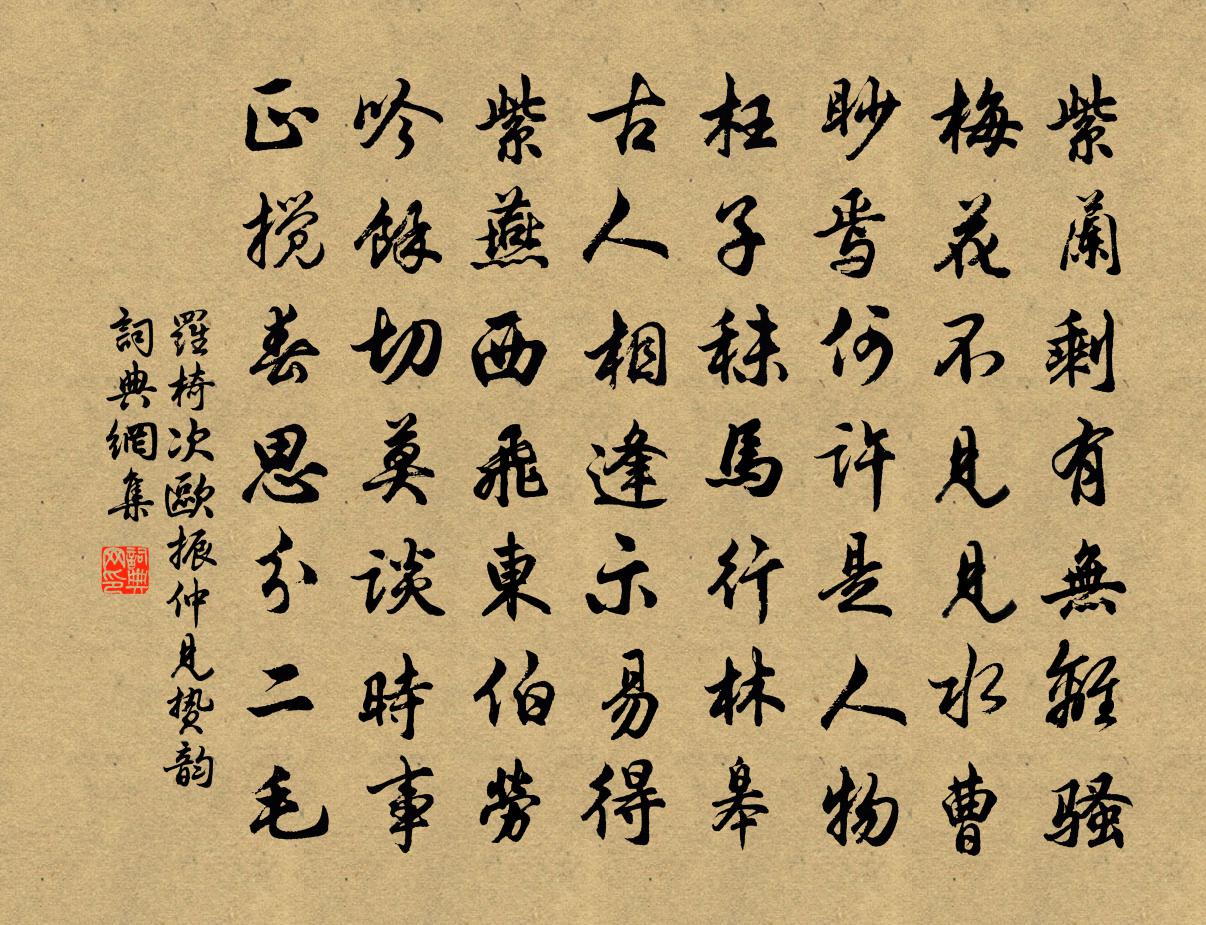 紫蘭剩有無離騷
梅花不見見水曹
眇焉何許是人物
枉子秣馬行林皋
古人相逢示易得
紫燕西飛東伯勞
吟餘切莫談時事
正攪春思分二毛
羅椅次歐振仲見贄韵
詞典網集
詞典
网印